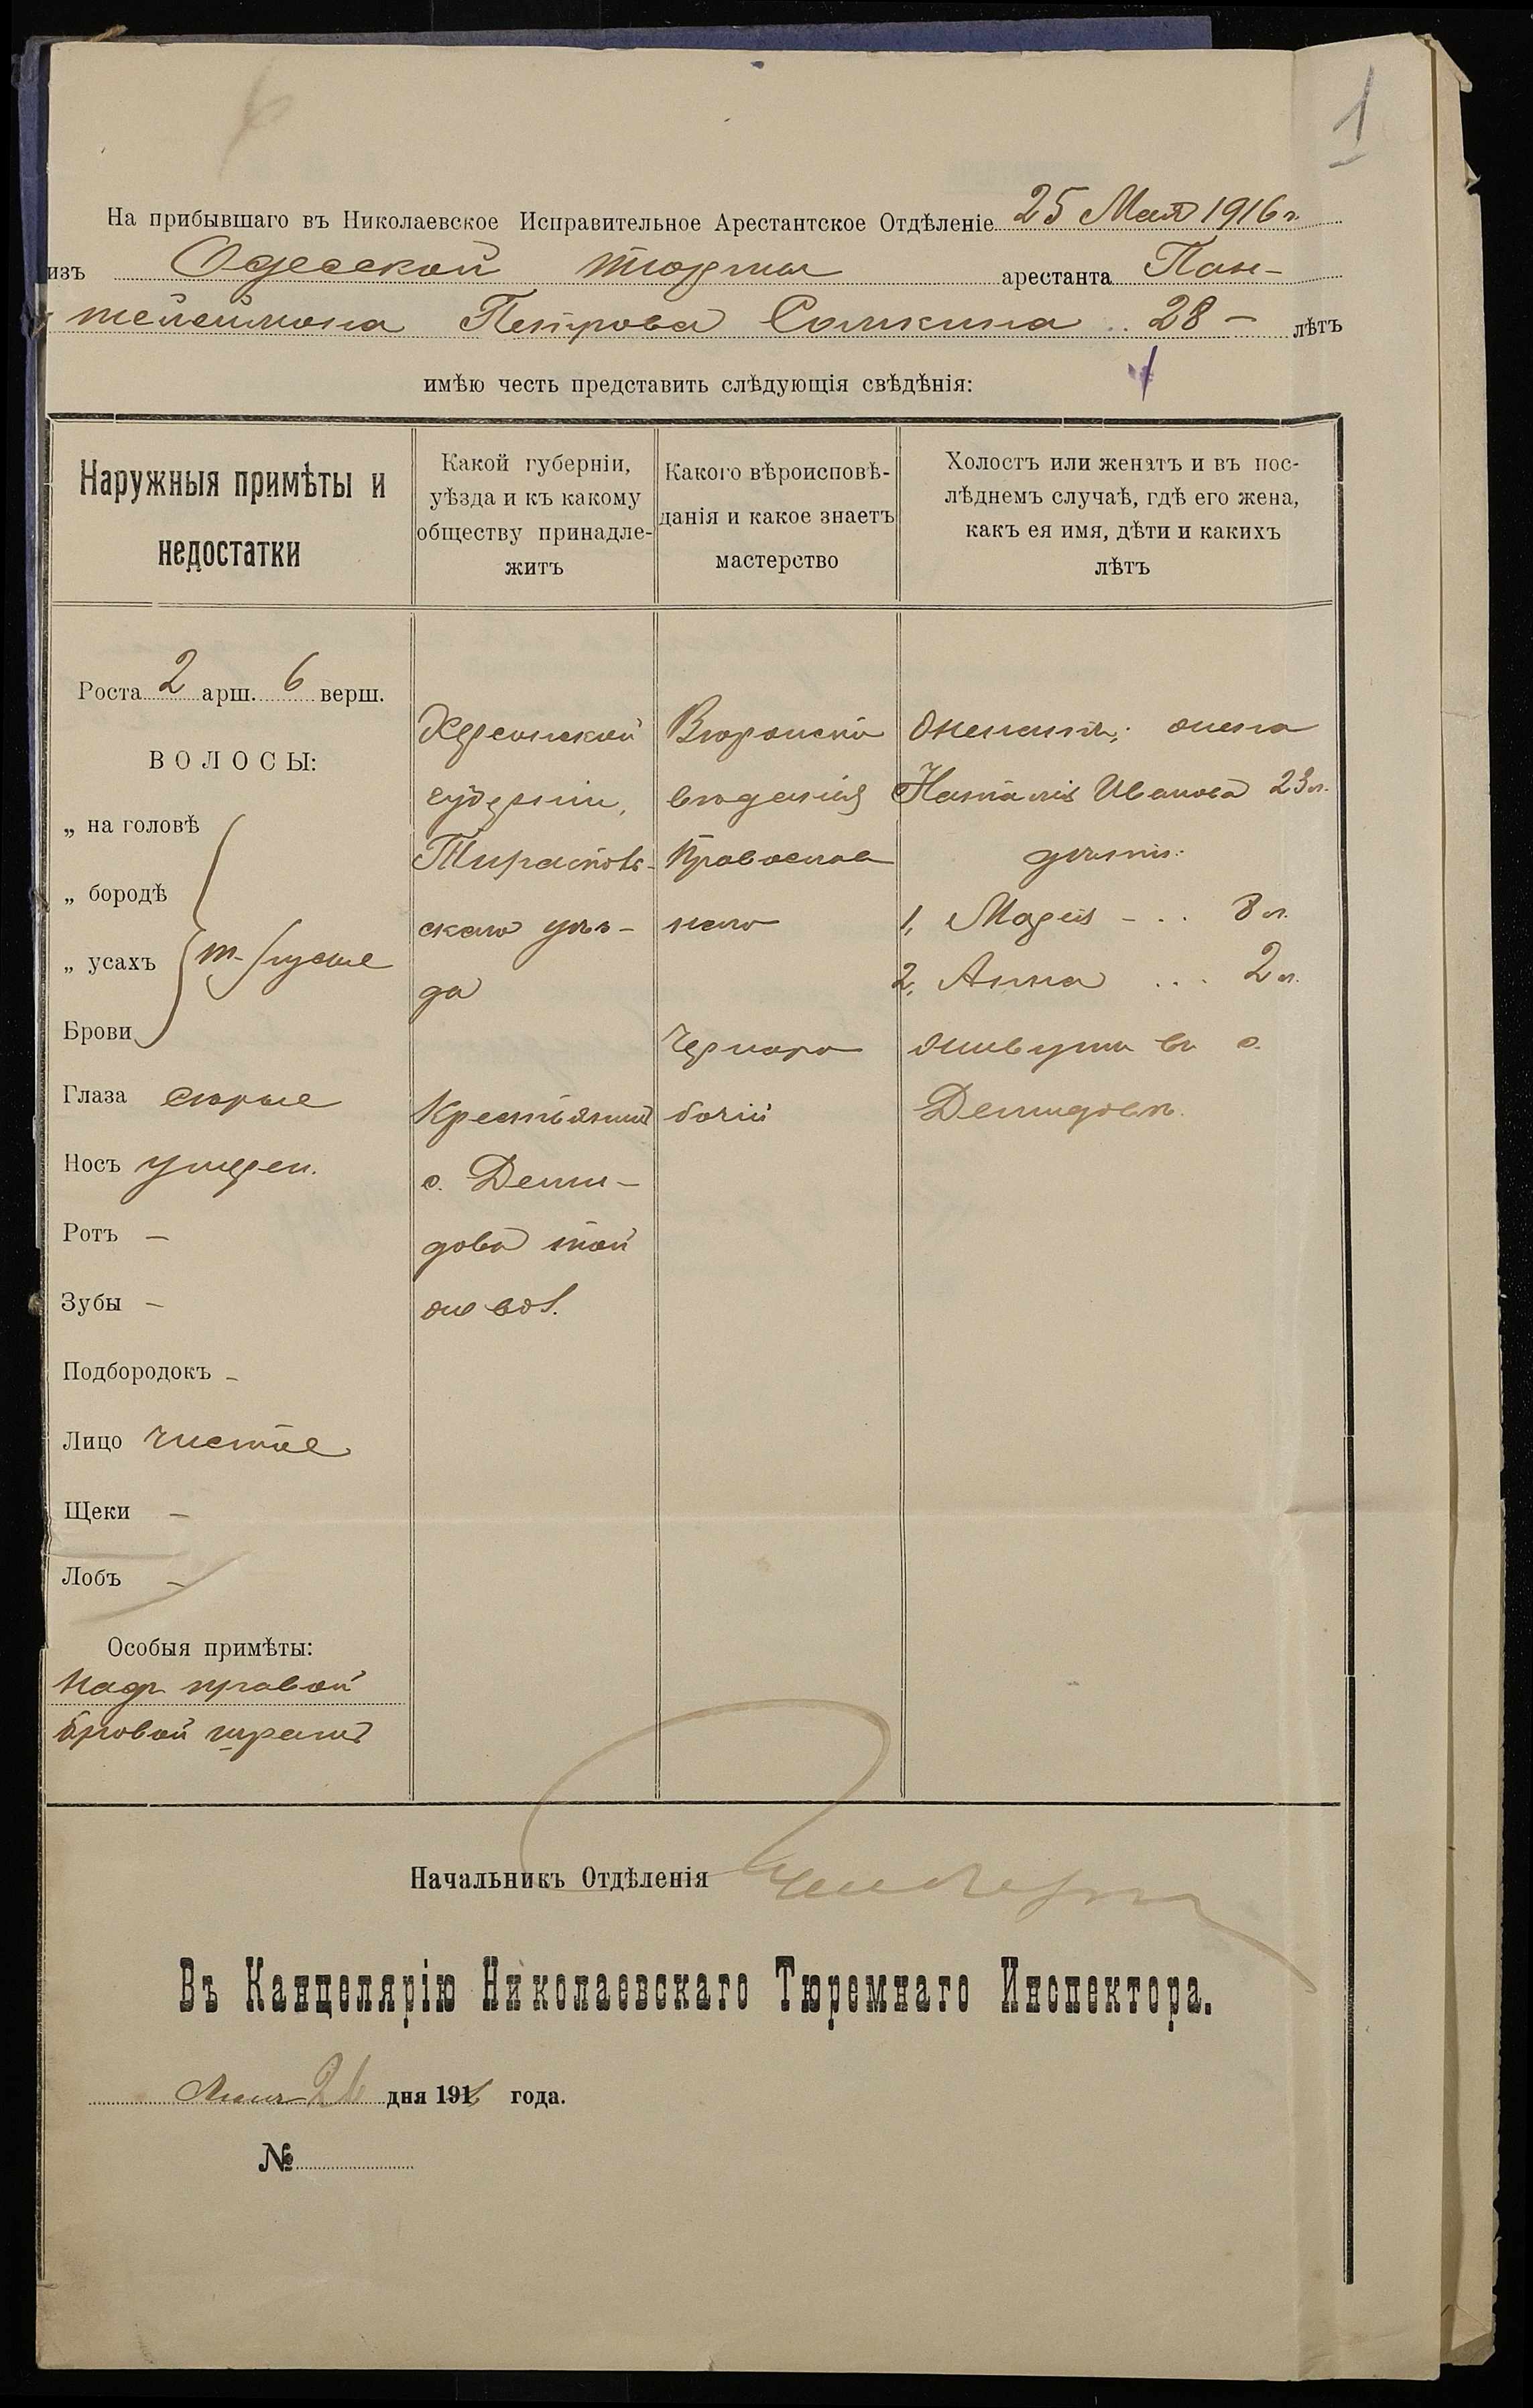 1
На прибывшаго въ Николаевское Исправительное Арестантское Отдѣленіе 25 Мая 1916 г.
изъ Одесской тюрмы арестанта Пан-
телеймона Петрова Сомкина 28 – лѣтъ
имѣю честь представить слѣдующія свѣдѣнія:
Наружныя примѣты и
недостатки
Роста 2 арш. 6 верш.
ВОЛОСЫ:
„ на головѣ
„ бородѣ
„ усахъ т-русые
Брови
Глаза сѣрые
Носъ умѣрен.
Ротъ –
Зубы –
Подбородокъ –
Лицо чистое
Щеки –
Лобъ –
Особыя примѣты:
Надъ правой
бровой шрамъ
Какой губерніи,
уѣзда и къ какому
обществу принадле-
житъ
Херсонской
губерніи,
Тираспол-
скаго уѣз-
да
Крестьянинъ
с. Деми-
дова той
же вол.
Какого вѣроисповѣ-
данія и какое знаетъ
мастерство
Вѣроиспо
вѣданія
Православ
наго
Чернора
бочій
Холостъ или женатъ и въ пос-
лѣднемъ случаѣ, гдѣ его жена,
какъ ея имя, дѣти и какихъ
лѣтъ
Женатъ; жена
Наталія Иванова 23 л.
дѣти:
1, Марія - . . 8 л.
2, Анна . . . 2 л.
живутъ въ с.
Демидовѣ.
Начальникъ Отдѣленія
Въ Канцелярію Николаевскаго Тюремнаго Инспектора.
26 дня 1916 года.
№